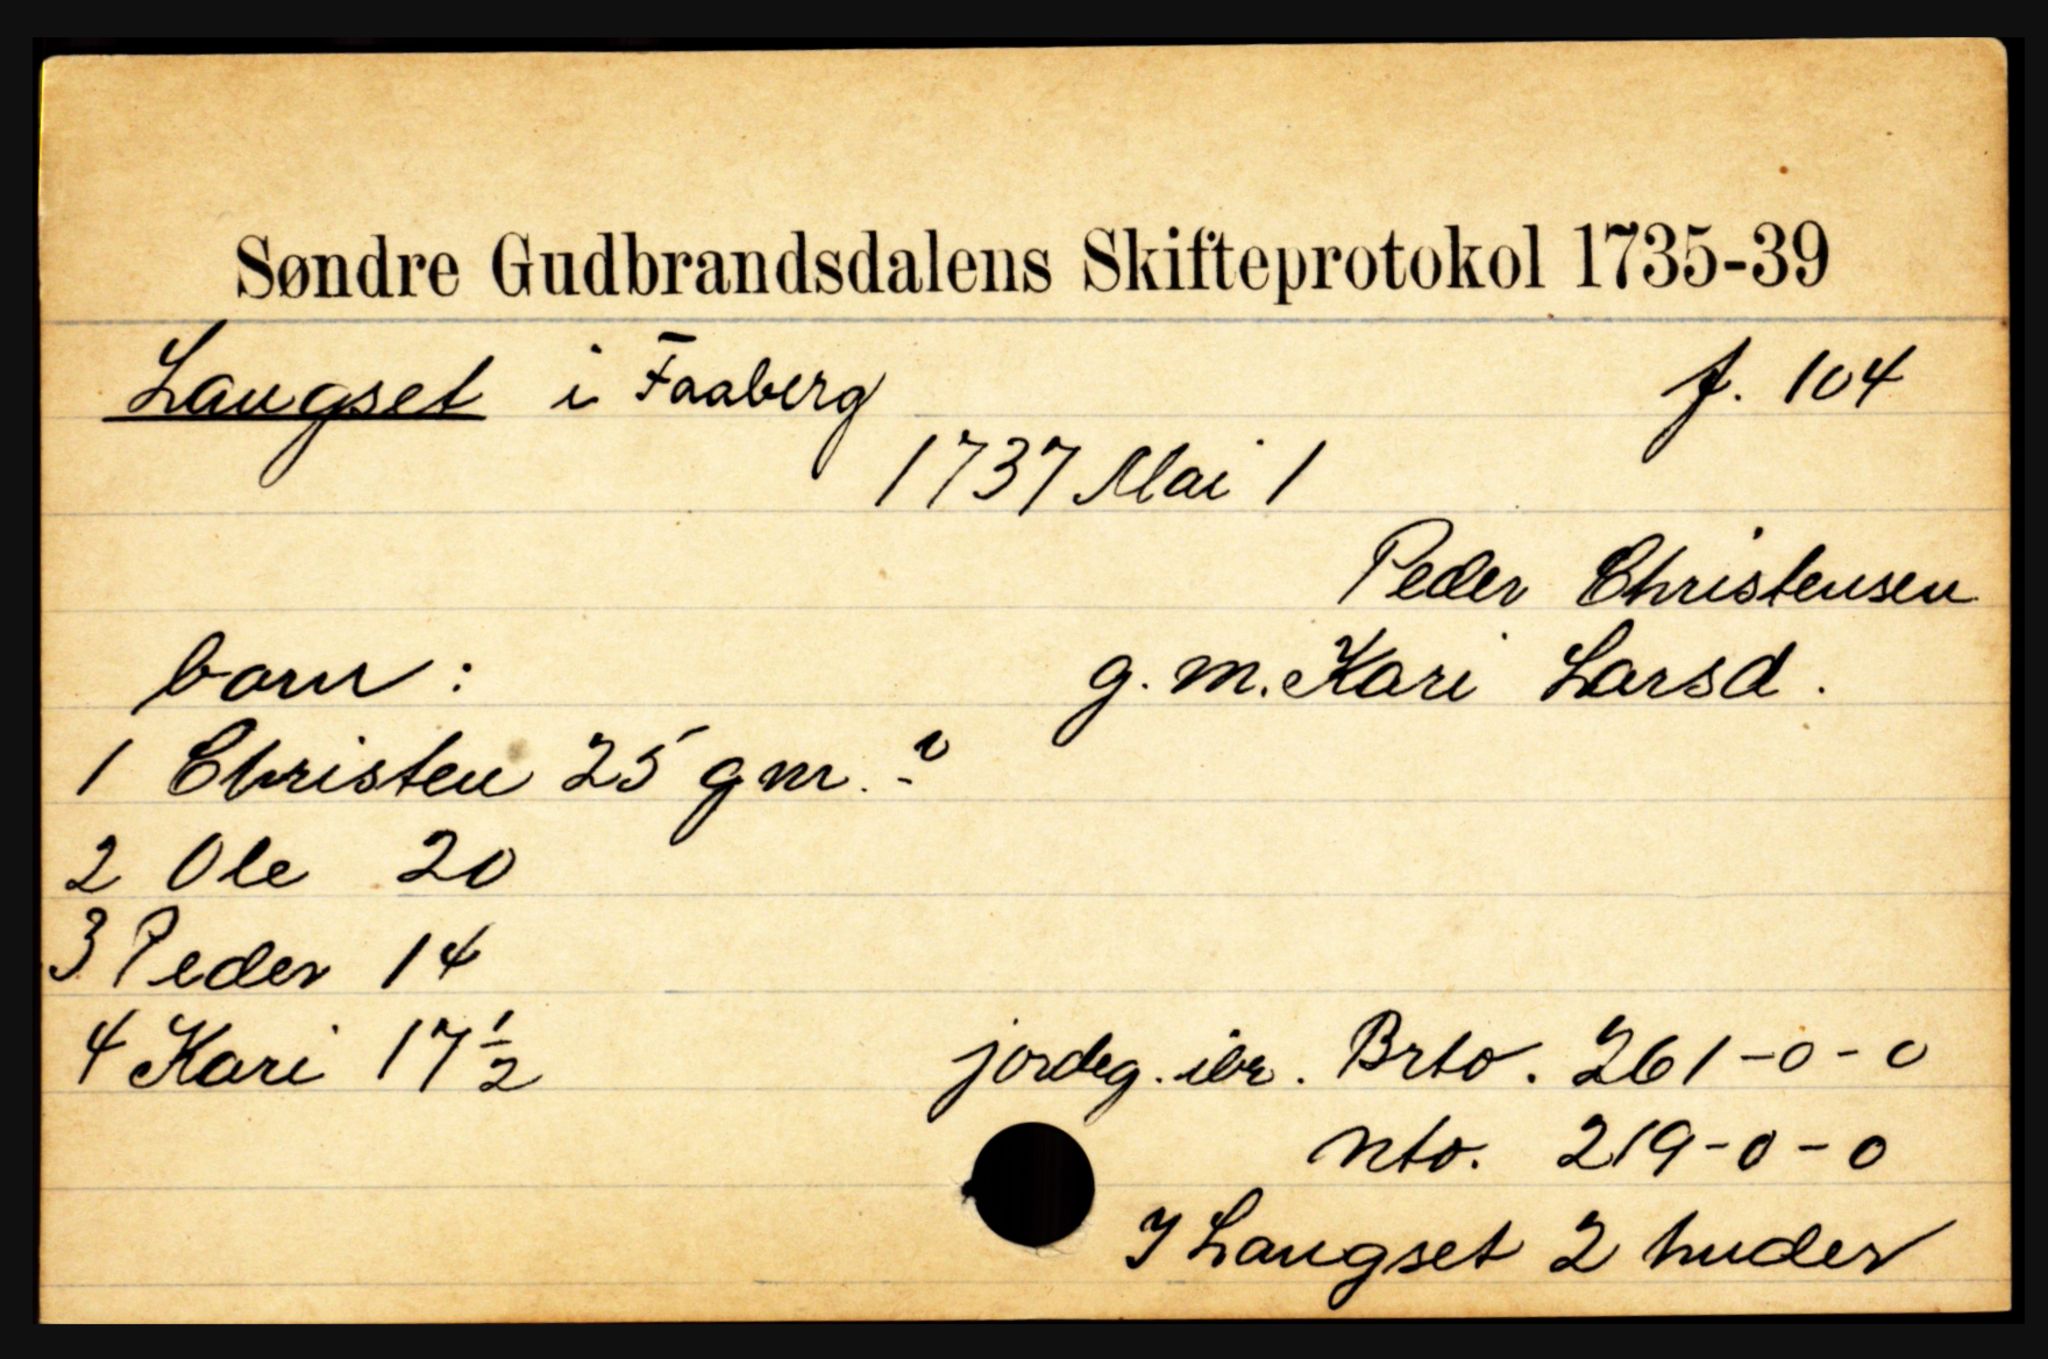 Søndre Gudbrandsdalens Skifteprotokol 1735-39
Laugset i Faaberg f. 104
1737 Mai 1
Peder Christensen
born : g. m. Kari Larsd.
1 Christen 25 gm. ?
2 Ole 20
3 Peder 14
4 Kari 17 1/2 jordeg. ibr. Brto. 261-0-0
nto. 219-0-0
I Laugset 2 huder